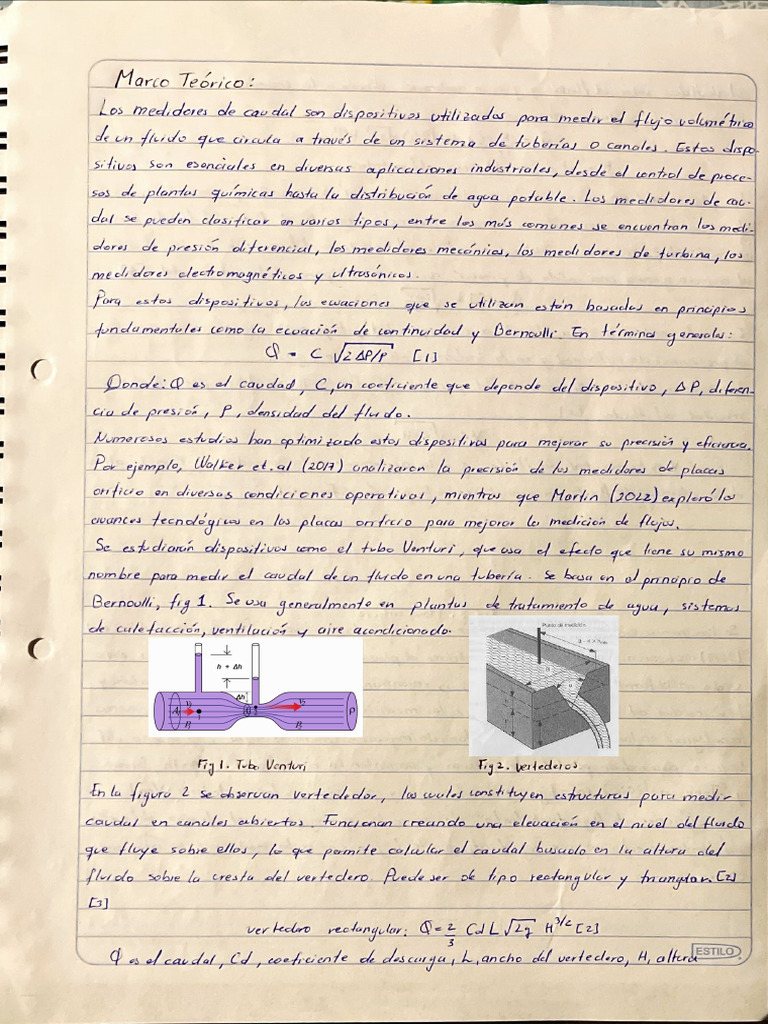 Marco Teórico:
Los medidores de caudal son dispositivos utilizados para medir el flujo volumétrico
de un fluido que circula a través de un sistema de tuberías o canales. Estos dispo-
sitivos son esenciales en diversas aplicaciones industriales, desde el control de proce-
sos de plantas químicas hasta la distribución de agua potable. Los medidores de cau-
dal se pueden clasificar en varios tipos, entre los más comunes se encuentran los medi-
dores de presión diferencial, los medidores mecánicos, los medidores de turbina, los
medidores electromagnéticos y ultrasónicos.
Para estos dispositivos, las ecuaciones que se utilizan están basadas en principios
fundamentales como la ecuación de continuidad y Bernoulli. En términos generales:
Q = C √2ΔP/ρ [1]
Donde: Q es el caudal, C, un coeficiente que depende del dispositivo, ΔP, diferen-
cia de presión, ρ, densidad del fluido.
Numerosos estudios han optimizado estos dispositivos para mejorar su precisión y eficiencia.
Por ejemplo, Walker et.al (2017) analizaron la precisión de los medidores de placas
orificio en diversas condiciones operativas, mientras que Martin (2022) exploró los
avances tecnológicos en las placas orificio para mejorar la medición de flujos.
Se estudiarán dispositivos como el tubo Venturi, que usa el efecto que tiene su mismo
nombre para medir el caudal de un fluido en una tubería. Se basa en el principio de
Bernoulli, fig 1. Se usa generalmente en plantas de tratamiento de agua, sistemas
de calefacción, ventilación y aire acondicionado.
h + Δh
Δh
Punto de medición
Fig 1. Tubo Venturi
Fig 2. Vertederos
En la figura 2 se observan vertededor, los cuales constituyen estructuras para medir
caudal en canales abiertos. Funcionan creando una elevación en el nivel del fluido
que fluye sobre ellos, lo que permite calcular el caudal basado en la altura del
fluido sobre la cresta del vertedero. Puede ser de tipo rectangular y triangular. [2]
[3]
vertedro rectangular: Q = 2/3 Cd L √2g H^3/2 [2]
Q es el caudal, Cd, coeficiente de descarga, L, ancho del vertedero, H, altura
ESTILO